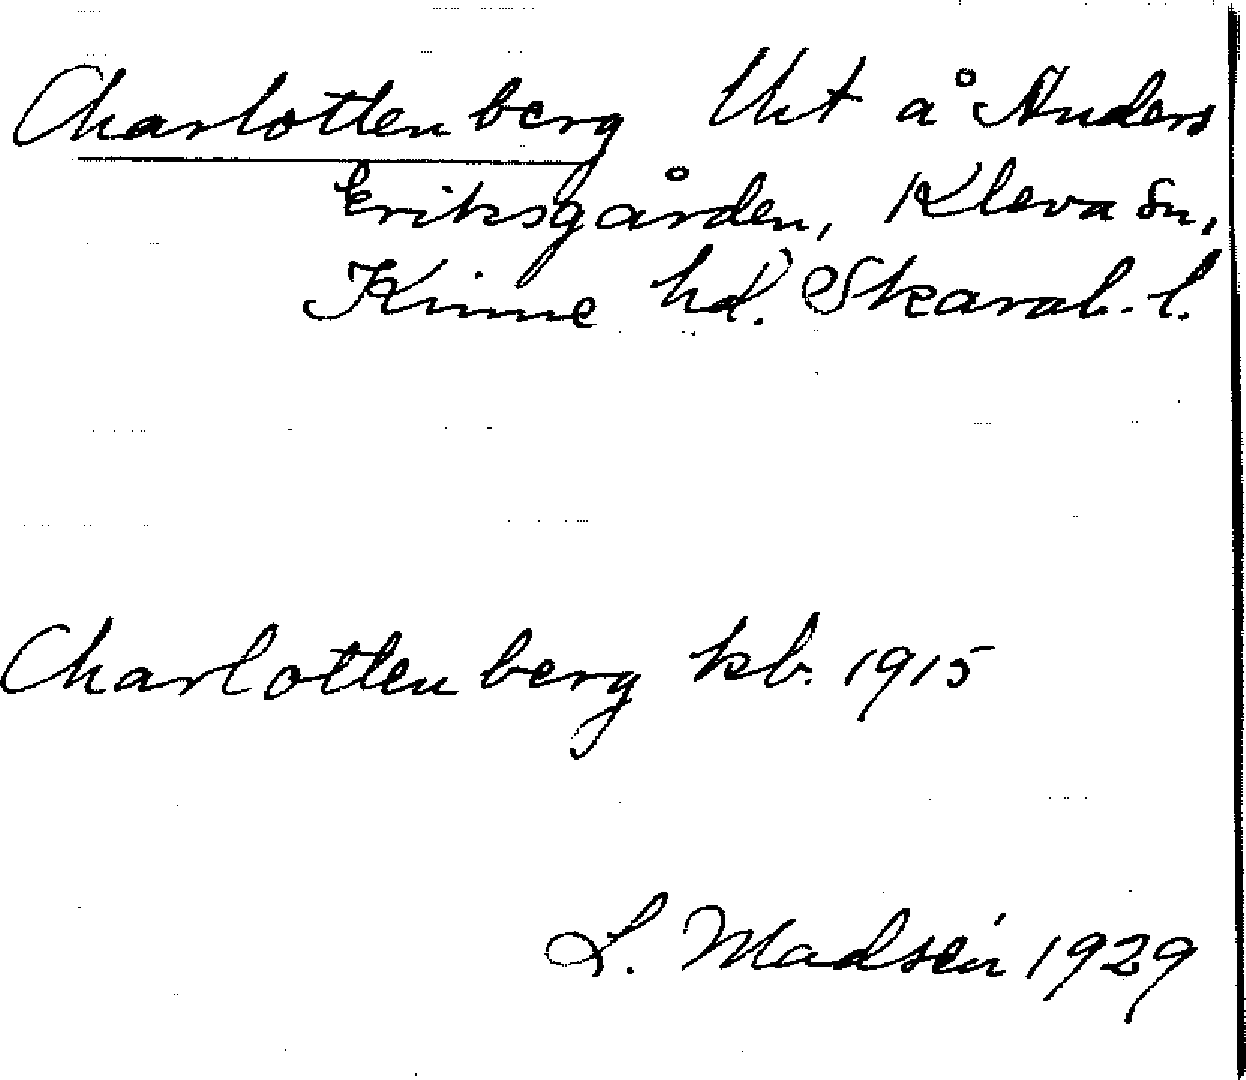 Charlottenberg Tht å Anders
Eriksgården, Kleva sn,
Kinne hd. Skarab. l.
Charlottenberg kb. 1915
L. Madsén 1929